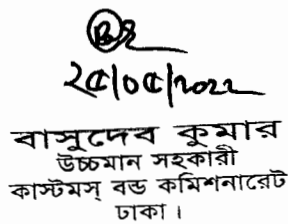 ২৫/০৫/২০২২
বাসুদেব কুমার
উচ্চমান সহকারী
কাস্টমস্ বন্ড কমিশনারেট
ঢাকা।